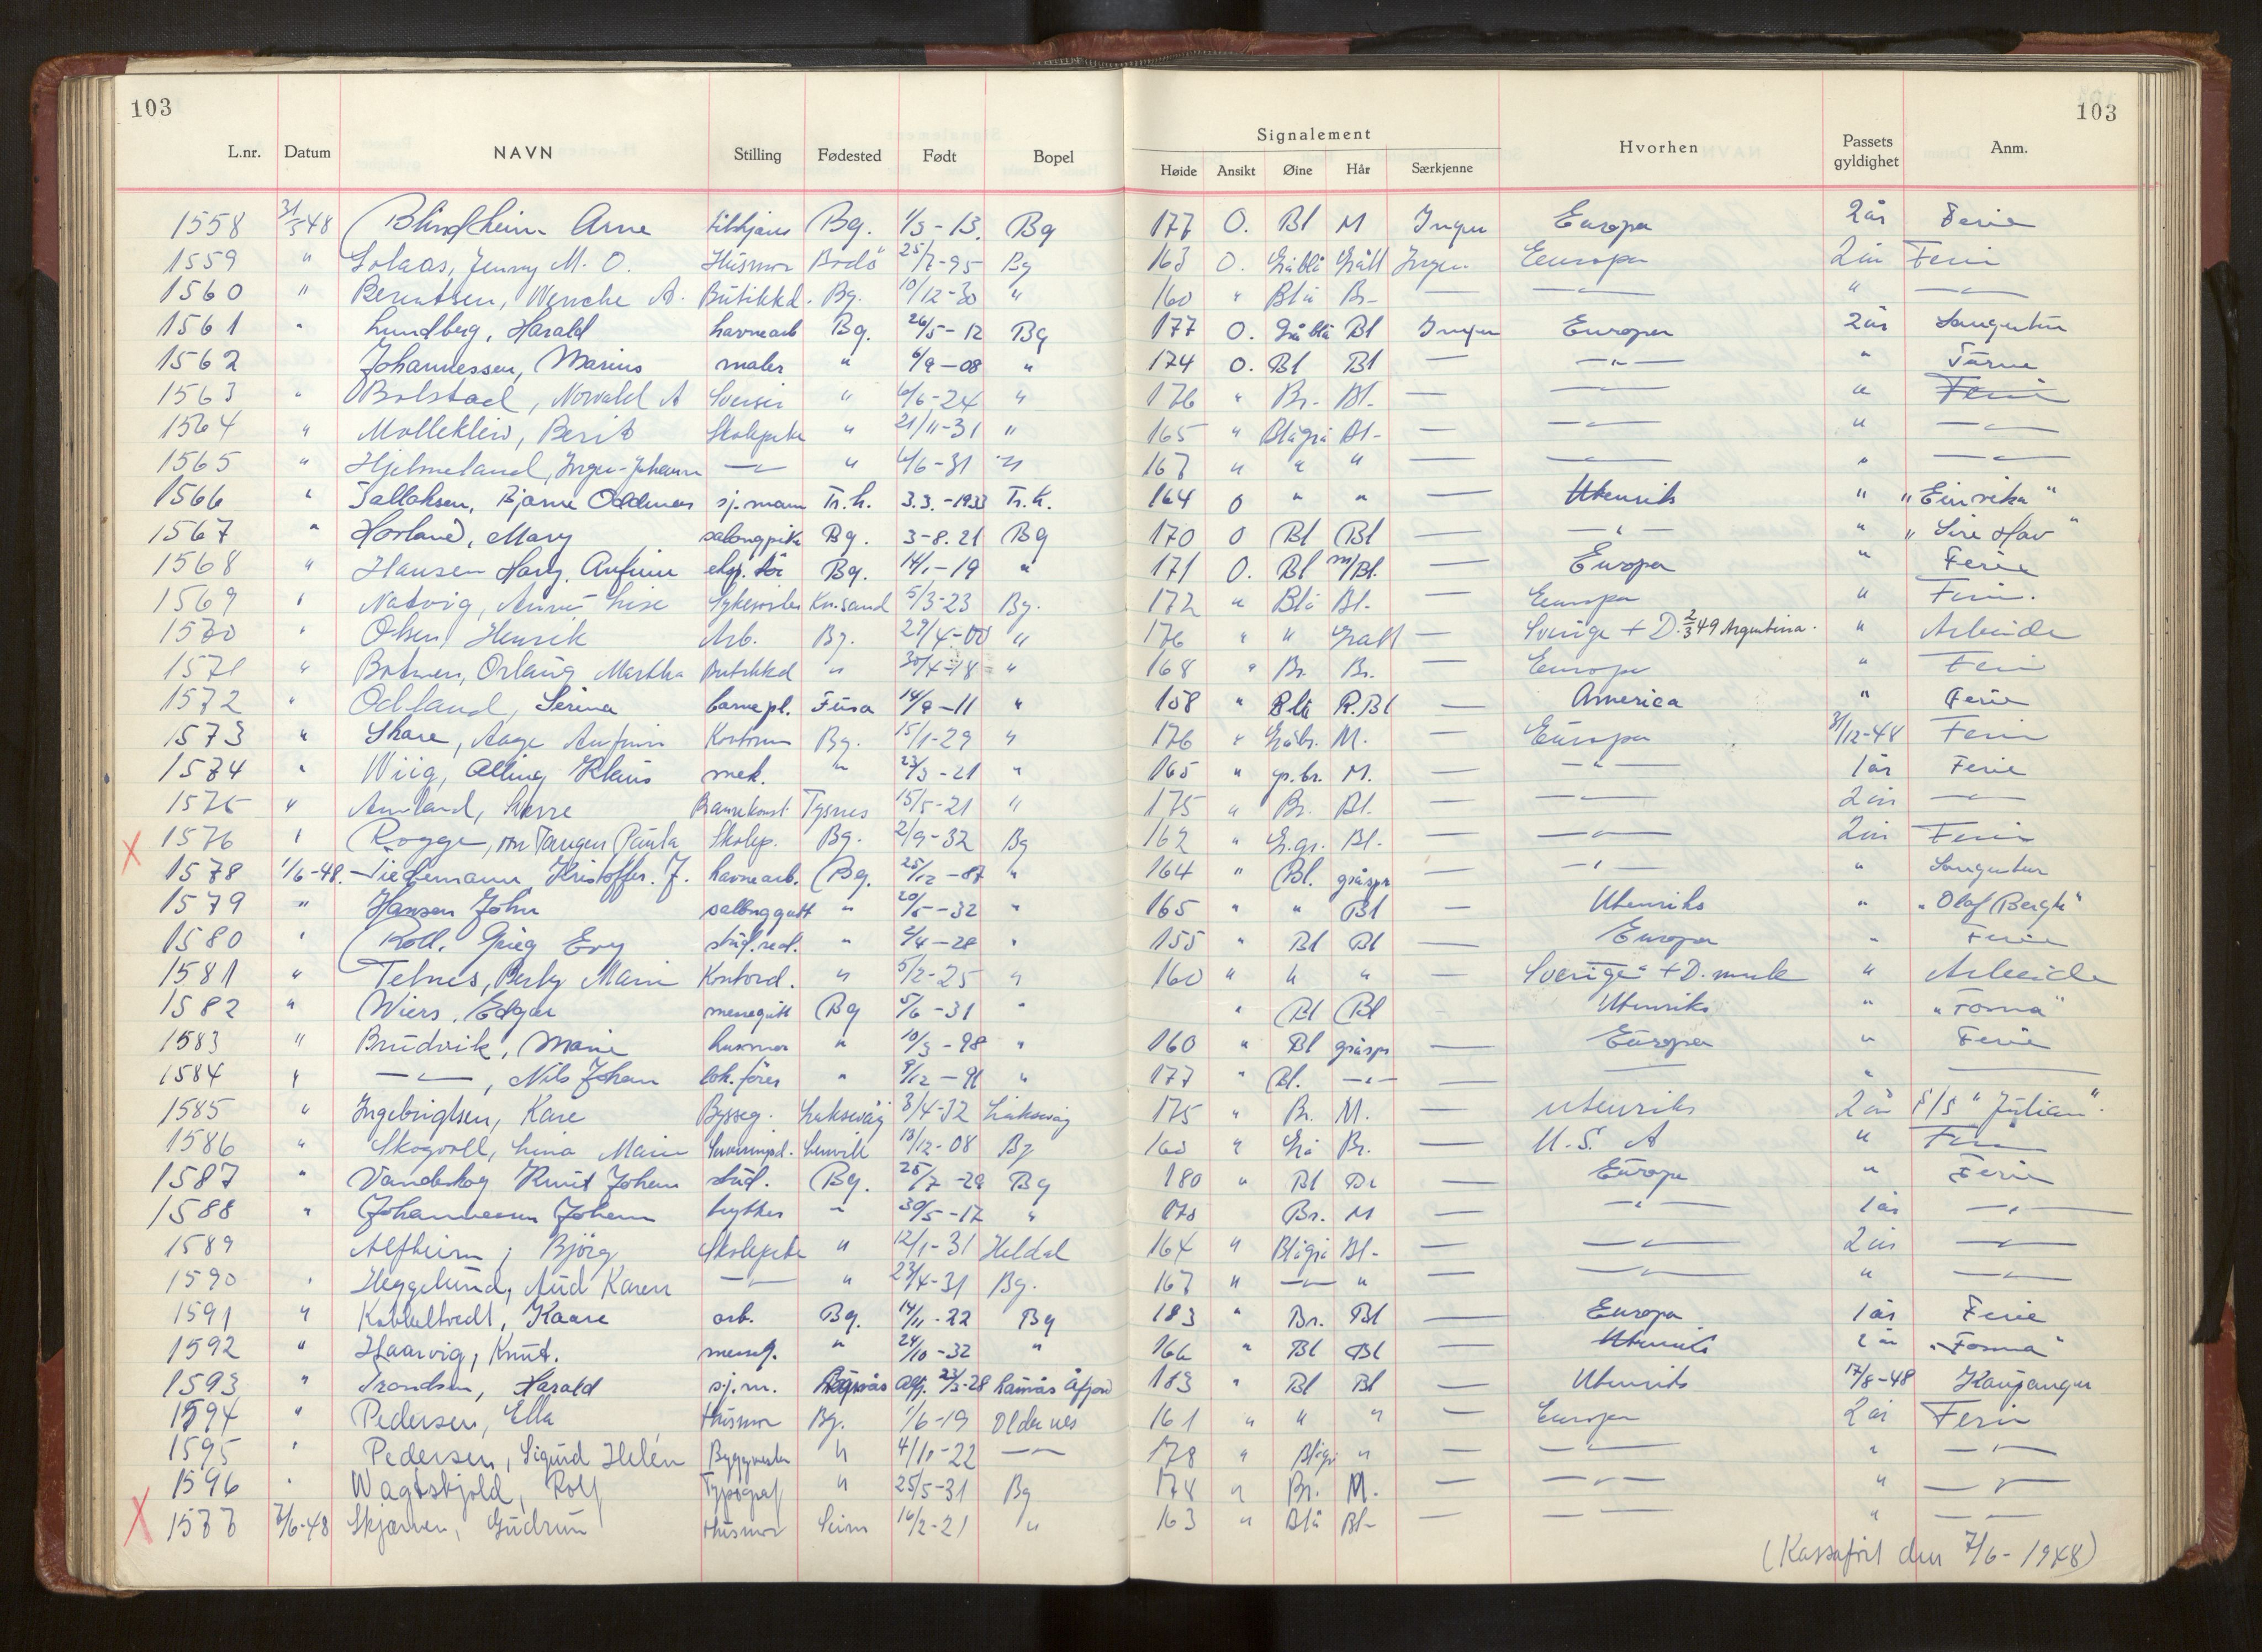 103
103
L.nr. Datum NAVN Stilling Fødested Født Bopel Signalement Hvorhen Passets gyldighet Anm.
Høide Ansikt Øine Hår Særkjenne
1558 31/5-48 Blindheim Arne Bg. 1/3-13. Bg 177 O. Bl M Ingen Europa 2 år Ferie
1559 " Solaas, Jenny M. O. Husmor Bodö 25/7-95 Bg 163 O. Gråblå Grått Ingen Europa 2 år Ferie
1560 " Berentsen, Wenche A. Butikkd. Bg. 10/12-30 " 160 " Blå Br- — —"— " —"—
1561 " Lundberg, Harald havnearb Bg. 26/5-12 Bg 177 O. Gråblå Bl Ingen Europa 2 år Sangertur
1562 Johannessen, Marius maler " 6/9-08 " 174 O. Bl Bl — —"— "
1563 " Bolstad, Norvald A " 6/6-24 " 176 " Br. Bl. — —"— " Ferie
1564 " Mollekleiv, Berit Skolepike " 21/11-31 " 165 " Blågrå Bl- — —"— " —"—
1565 " Hjelmeland, Inger-Johanne —"— " 4/6-31 " 167 " " " — —"— " —"—
1566 " Tallaksen, Bjarne Oddmar sj.mann Tr.h. 3.3.-1933 Tr.h. 164 O " " — Utenriks " "Einvika"
1567 " Horland, Mary salongpike Bg. 3-8.21 Bg 170 O Bl Bl — —"— " "Sire Hav"
1568 " Hansen Harry Anfinn eksp. Bg. 14/1-19 " 171 O. Bl m/Bl. — Europa " Ferie
1569 " Natvig, Anne Lise Sykesöster Kr.sand 5/3-23 Bg. 172 " Blå Bl- — Europa " Ferie.
1570 " Olsen, Henrik Arb. Bg. 29/4-00 " 176 " " Grått — Sverige + D. 2/3 49 Argentina. " Arbeide
1571 " Botnen, Orlaug Martha Butikkd " 30/4-18 " 168 " Br. Br. — Europa " Ferie
1572 " Odland, Serina barnepl. Fusa 14/9-11 " 158 " Blå R.Bl — America " Ferie
1573 " Skare, Aage Anfinn Kontorm Bg. 15/1-29 " 176 " Gråbr. M. — Europa 31/12-48 Ferie
1574 " Wiig, Alling Klaus mek. " 23/3-21 " 165 " gr.br. M. — —"— 1 år Ferie
1575 " Amland, Sverre Tysnes 15/5-21 " 175 " Br. Bl. — —"— 2 år —"—
X 1576 " Rogge, von Tangen Paula Skolep. Bg. 2/9-32 Bg 162 " G.gr. Bl- — —"— 2 år Ferie
1578 1/6-48. Tiedemann Kristoffer. J. havnearb. Bg. 25/12-87 " 164 " Bl. gråspr — —"— " Sangertur
1579 " Hansen John salonggutt " 20/5-32 " 165 " " Bl Utenriks " "Olaf Bergh"
1580 " Roll. Grieg Evy stud.real. " 2/4-28 " 155 " Bl Bl — Europa " Ferie
1581 " Telnes, Berly Marie Kontord. " 5/2-25 " 160 " " " — Sverige + D.mark " Arbeide
1582 " Wiers, Edgar messegutt Bg 5/6-31 " " Bl Bl Utenriks " "Forma"
1583 " Brudvik, Marie husmor " 10/3-98 " 160 " Bl gråspr — Europa " Ferie
1584 " —"—, Nils Johan lok.förer " 9/12-91 " 177 " Bl. —"— — — " —
1585 " Ingebrigtsen, Kare Bysseg. Laksevåg 3/4-32 Laksevåg 175 " Br. M. — Utenriks 2 år S/S "Julian".
1586 " Skogvoll, Lina Marie Lenvik 13/12-08 Bg 160 " Grå Br. — U.S.A " Ferie
1587 " Vandeskog Knut Johan stud. Bg. 28/7-29 Bg 180 " Bl — Europa " Ferie
1588 " Johannessen Johan " 30/5-17 " 178 Br. M — —"— 1 år —"—
1589 Alfheim, Björg Skolepike " 12/1-31 Heldal 164 " Blågrå Bl- — —"— 2 år —"—
1590 " Heggelund, Aud Karen —"— " 23/4-31 Bg. 167 " —"— " — —"— " —"—
1591 " Kobbeltvedt, Kaare arb. Bg. 14/11-22 Bg 183 " Br. Bl — Europa 1 år Ferie
1592 " Haarvig, Knut. messeg. " 24/10-32 " 166 " Bl Bl — Utenriks 2 år "Forma"
1593 " Trondsen, Harald sj.m. 23/3-28 Åfjord 183 " Bl Bl — Utenriks 17/8-48 Kaupanger
1594 " Pedersen, Ella Husmor Bg. 1/6-19 Oldernes 161 " " " — Europa 2 år Ferie
1595 " Pedersen, Sigurd Helén " 4/11-22 —"— 178 " Blågr " — —"— " —"—
1596 " Wagtskjold, Rolf Typograf " 25/5-31 Bg 174 " Br. M. — —"— " —"—
X 1577 7/6-48 Skjærven, Gudrun Husmor Seim 16/2-21 " 163 " Blå Bl- — — — " — —
(Kassaført den 7/6-1948)